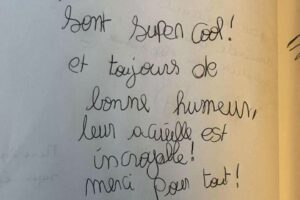 sont super cool!
et toujours de
bonne humeur,
leur acueille est
incroyable!
merci pour tout!